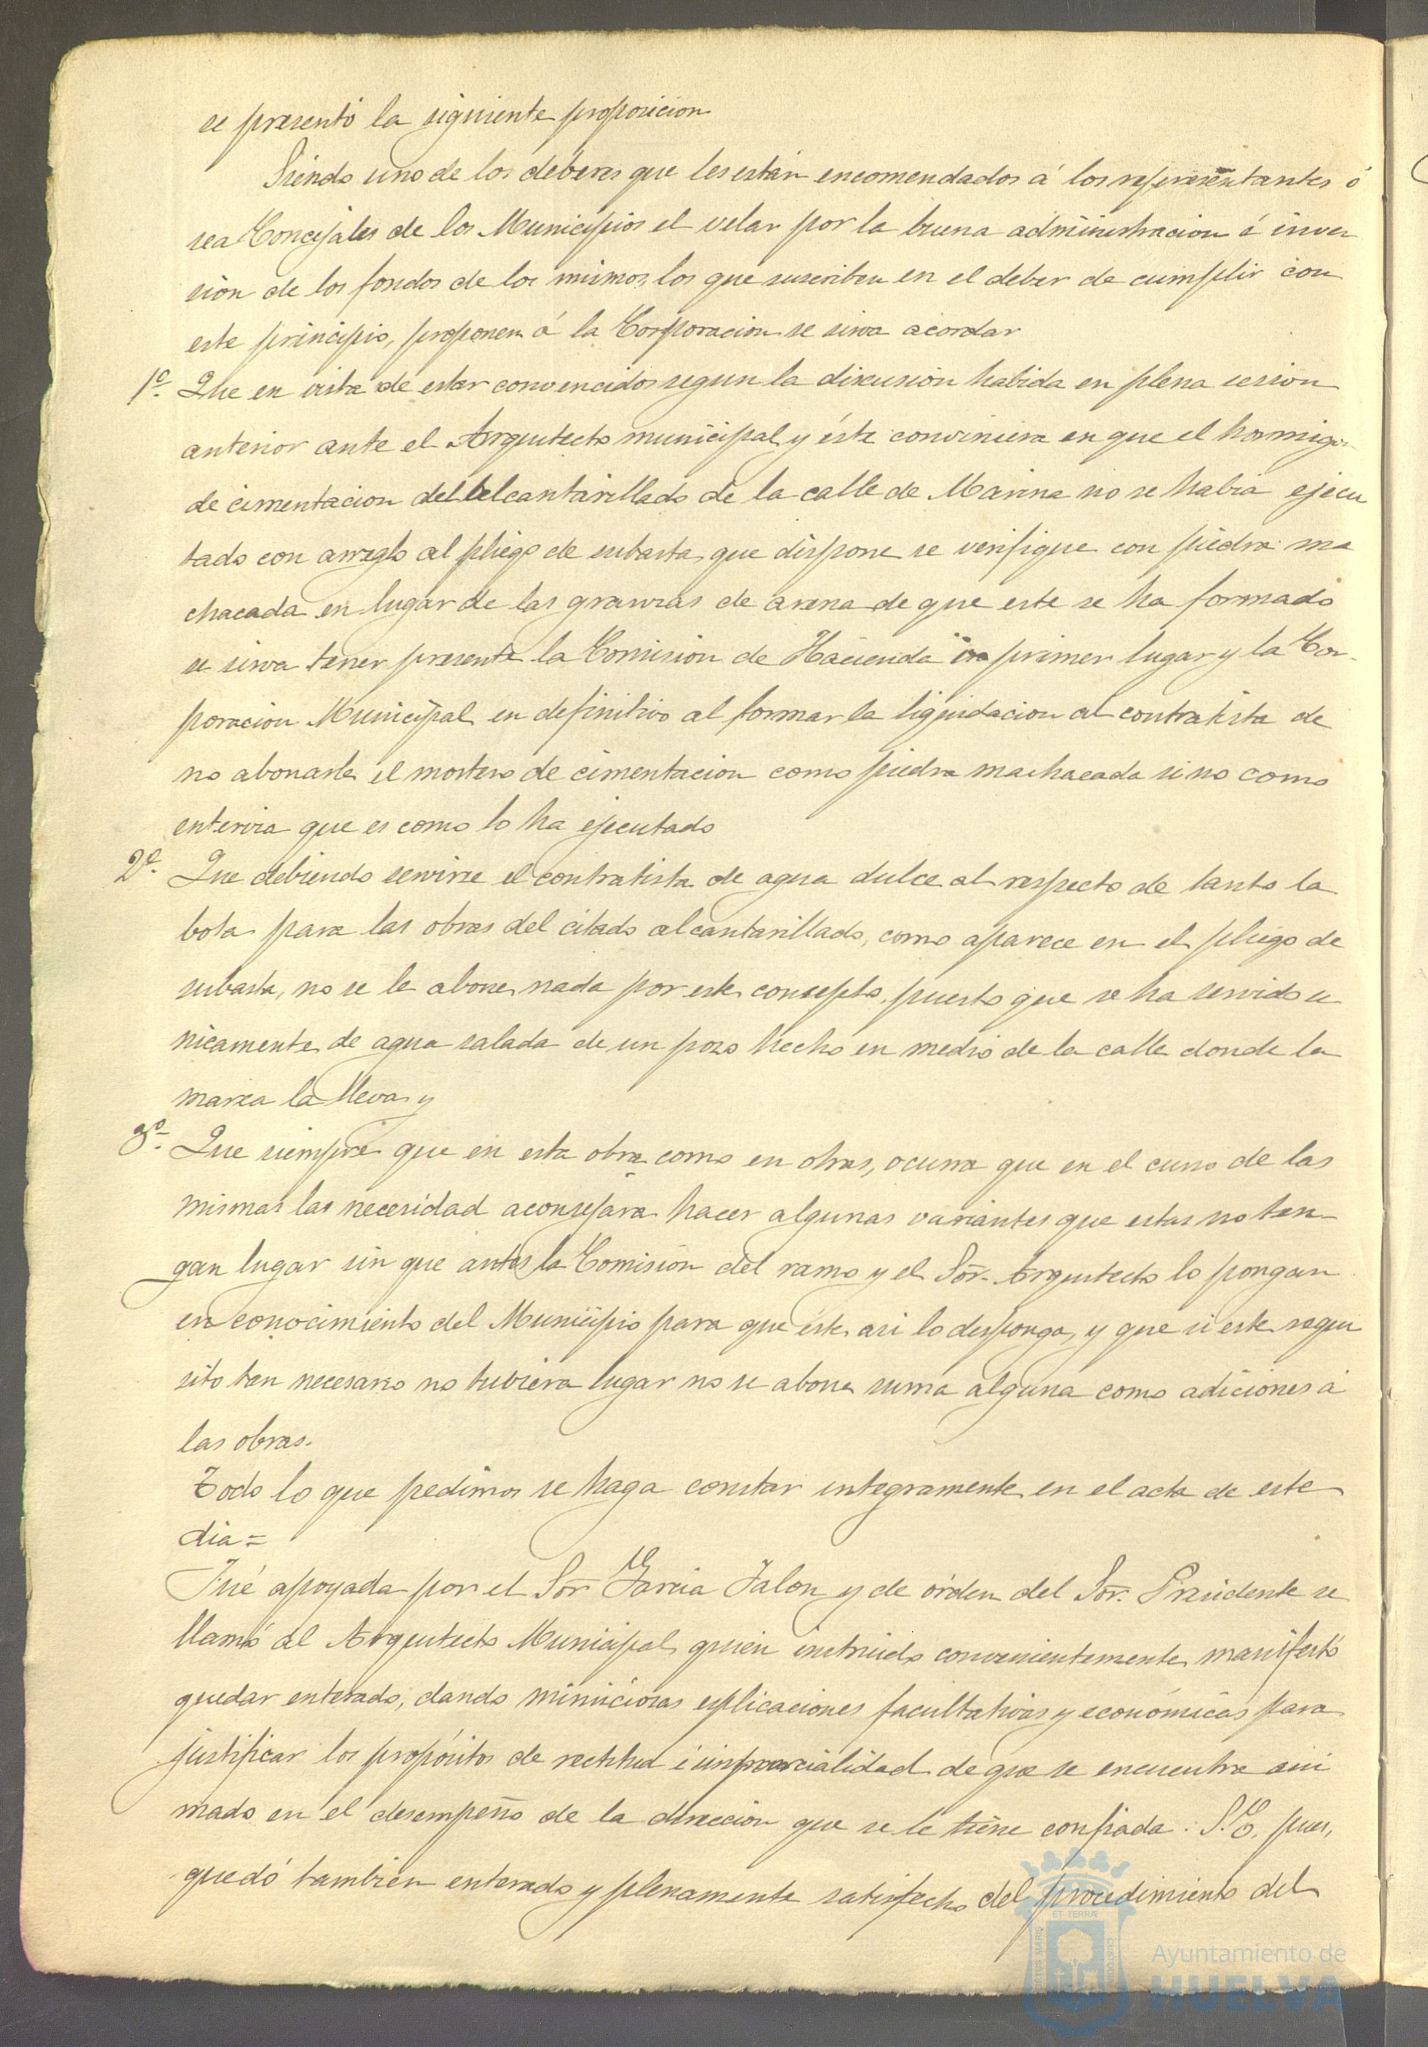 se presentó la siguiente proposicion
Siendo uno de los deberes que les están encomendados á los representantes ó
sea Concejales de los Municipios el velar por la buena administracion é inver
sion de los fondos de los mismos, los que suscriben en el deber de cumplir con
este principio, proponen á la Corporacion se sirva acordar
1º Que en vista de estar convencidos segun la discusión habida en plena sesion
anterior ante el Arquitecto municipal y éste conviniera en que el hormigon
de cimentacion del alcantarillado de la calle de Marina no se habia ejecu
tado con arreglo al pliego de subasta que dispone se verifique con piedra ma
chacada en lugar de las granzas de arena de que este se ha formado
se sirva tener presente la Comisión de Hacienda en primer lugar y la Cor-
poracion Municipal en definitivo al formar la liquidacion al contratista de
no abonarle el mortero de cimentacion como piedra machacada si no como
que es como lo ha ejecutado
2º Que debiendo servirse el contratista de agua dulce al respecto de tanto la
bota para las obras del citado alcantarillado, como aparece en el pliego de
subasta, no se le abone nada por este concepto, puesto que se ha servido u
nicamente de agua salada de un pozo hecho en medio de la calle donde la
marea la lleva, y
3º Que siempre que en esta obra como en otras, ocurra que en el curso de las
mismas las necesidad aconsejara hacer algunas variantes que estas no ten-
gan lugar sin que antes la Comisión del ramo y el Sor. Arquitecto lo pongan
en conocimiento del Municipio para que éste asi lo desponga, y que si este requi
sito tan necesario no tubiera lugar no se abone suma alguna como adiciones á
las obras.
Todo lo que pedimos se haga constar integramente en el acta de este
dia =
Fué apoyada por el Sor Garcia Jalon y de órden del Sor. Presidente se
llamó al Arquitecto Municipal quien instruido convenientemente, manifestó
quedar enterado, dando minuciosas esplicaciones facultativas y económicas para
justificar los propósitos de rectitud é imparcialidad de que se encuentra ani
mado en el desempeño de la direccion que se le tiene confiada. S.E. pues,
quedó tambien enterado y plenamente satisfecho del procedimiento del
Ayuntamiento de
HUELVA